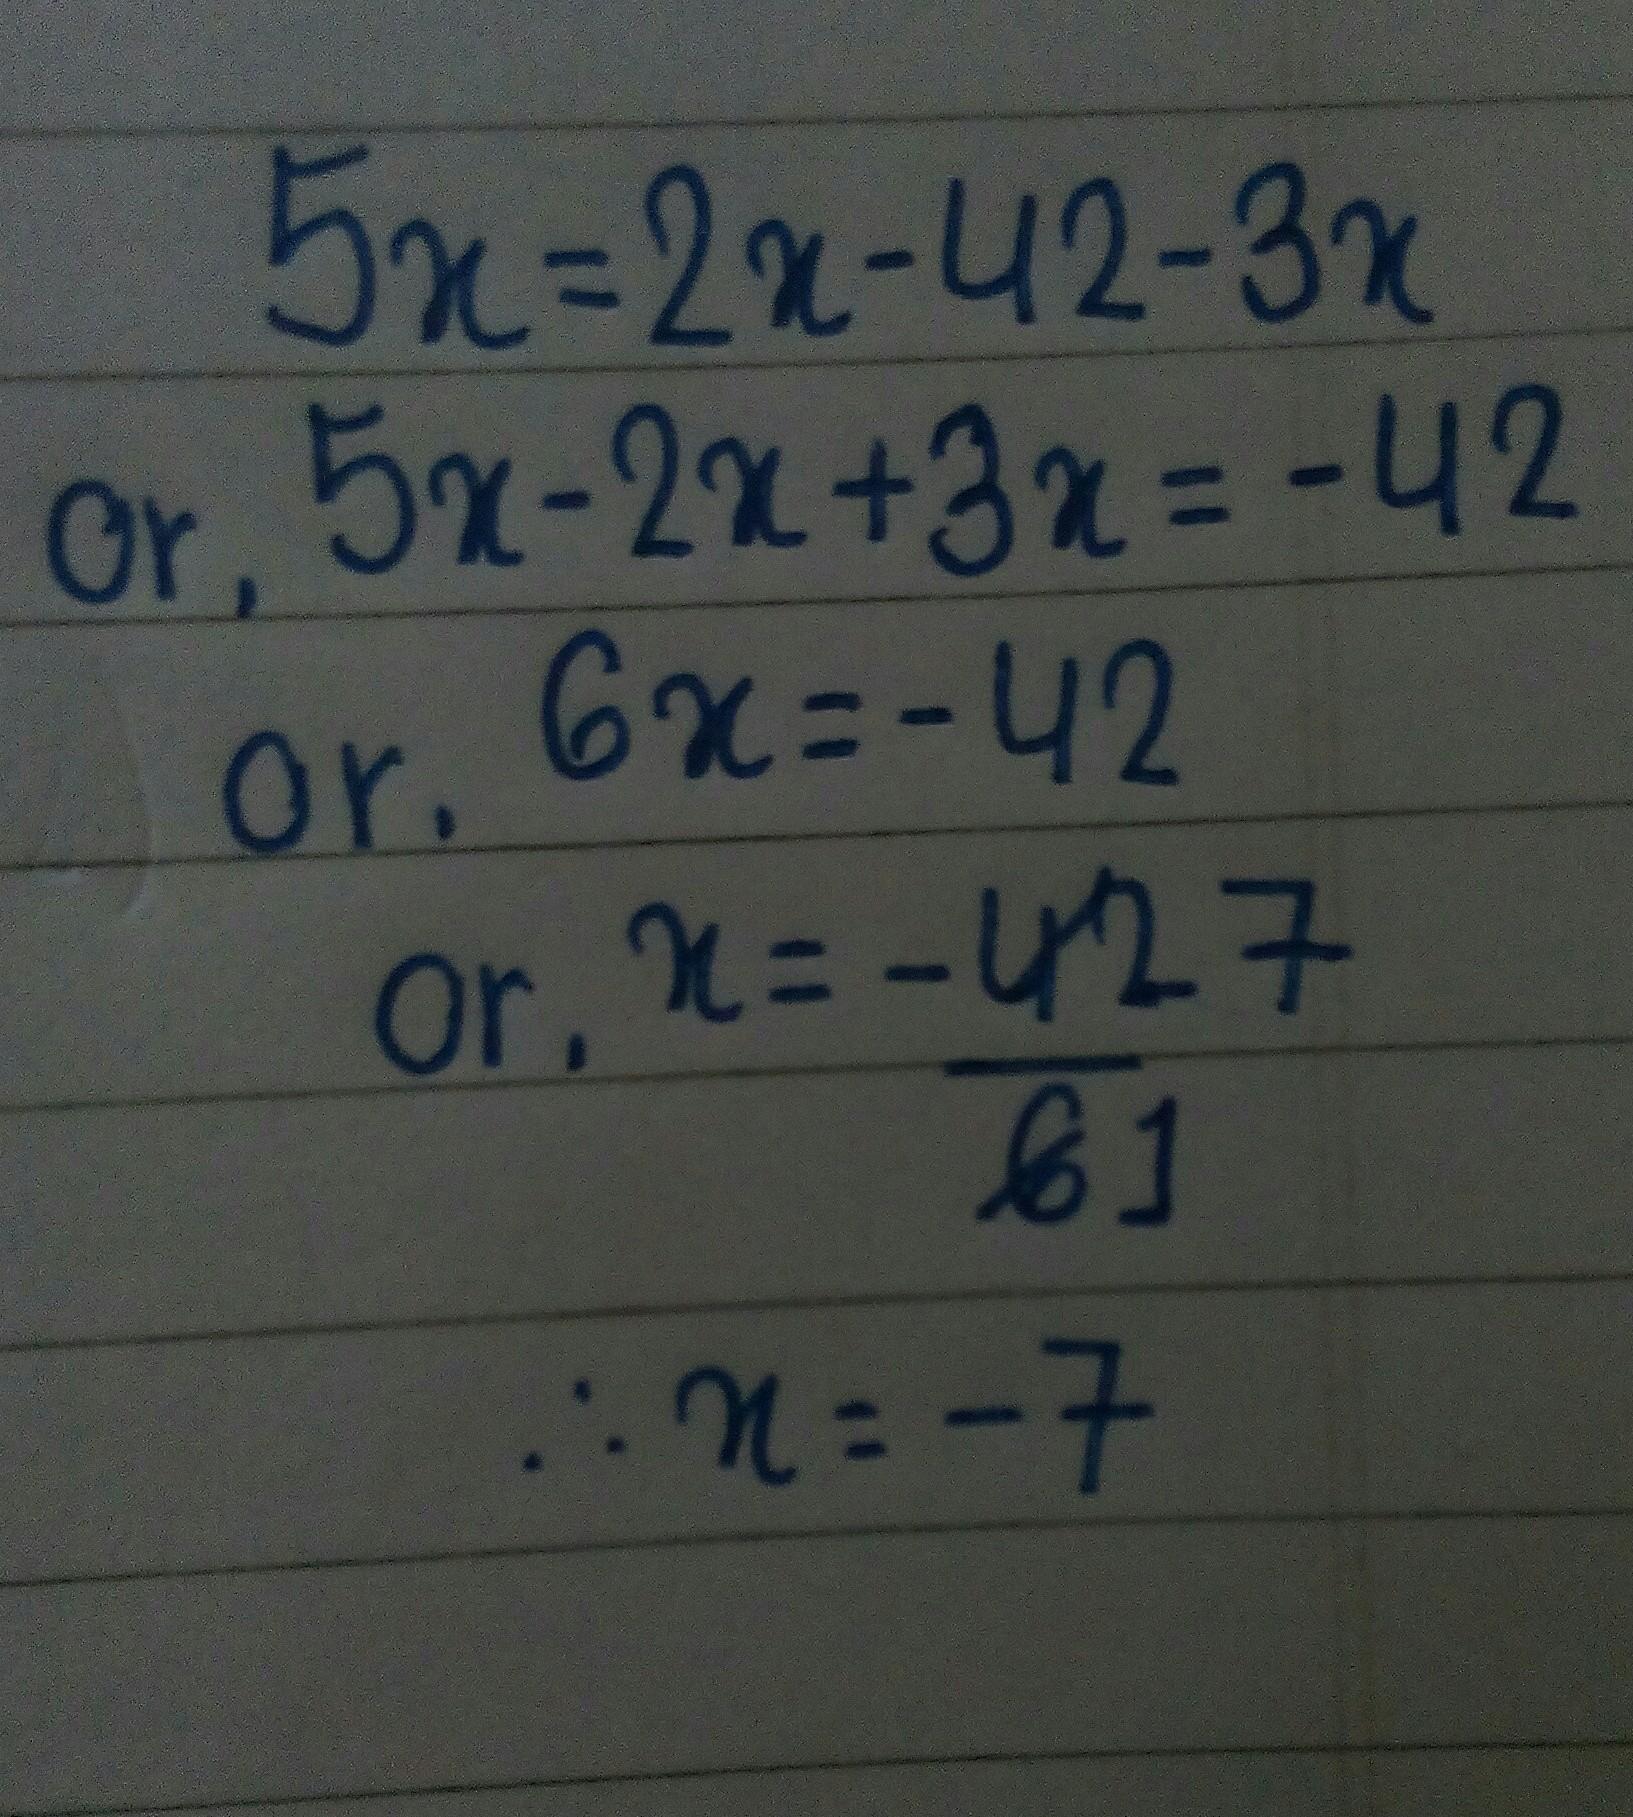 5x=2x-42-3x
Or, 5x-2x+3x=-42
Or, 6x=-42
Or, x=-42 7
6 1
∴ x=-7